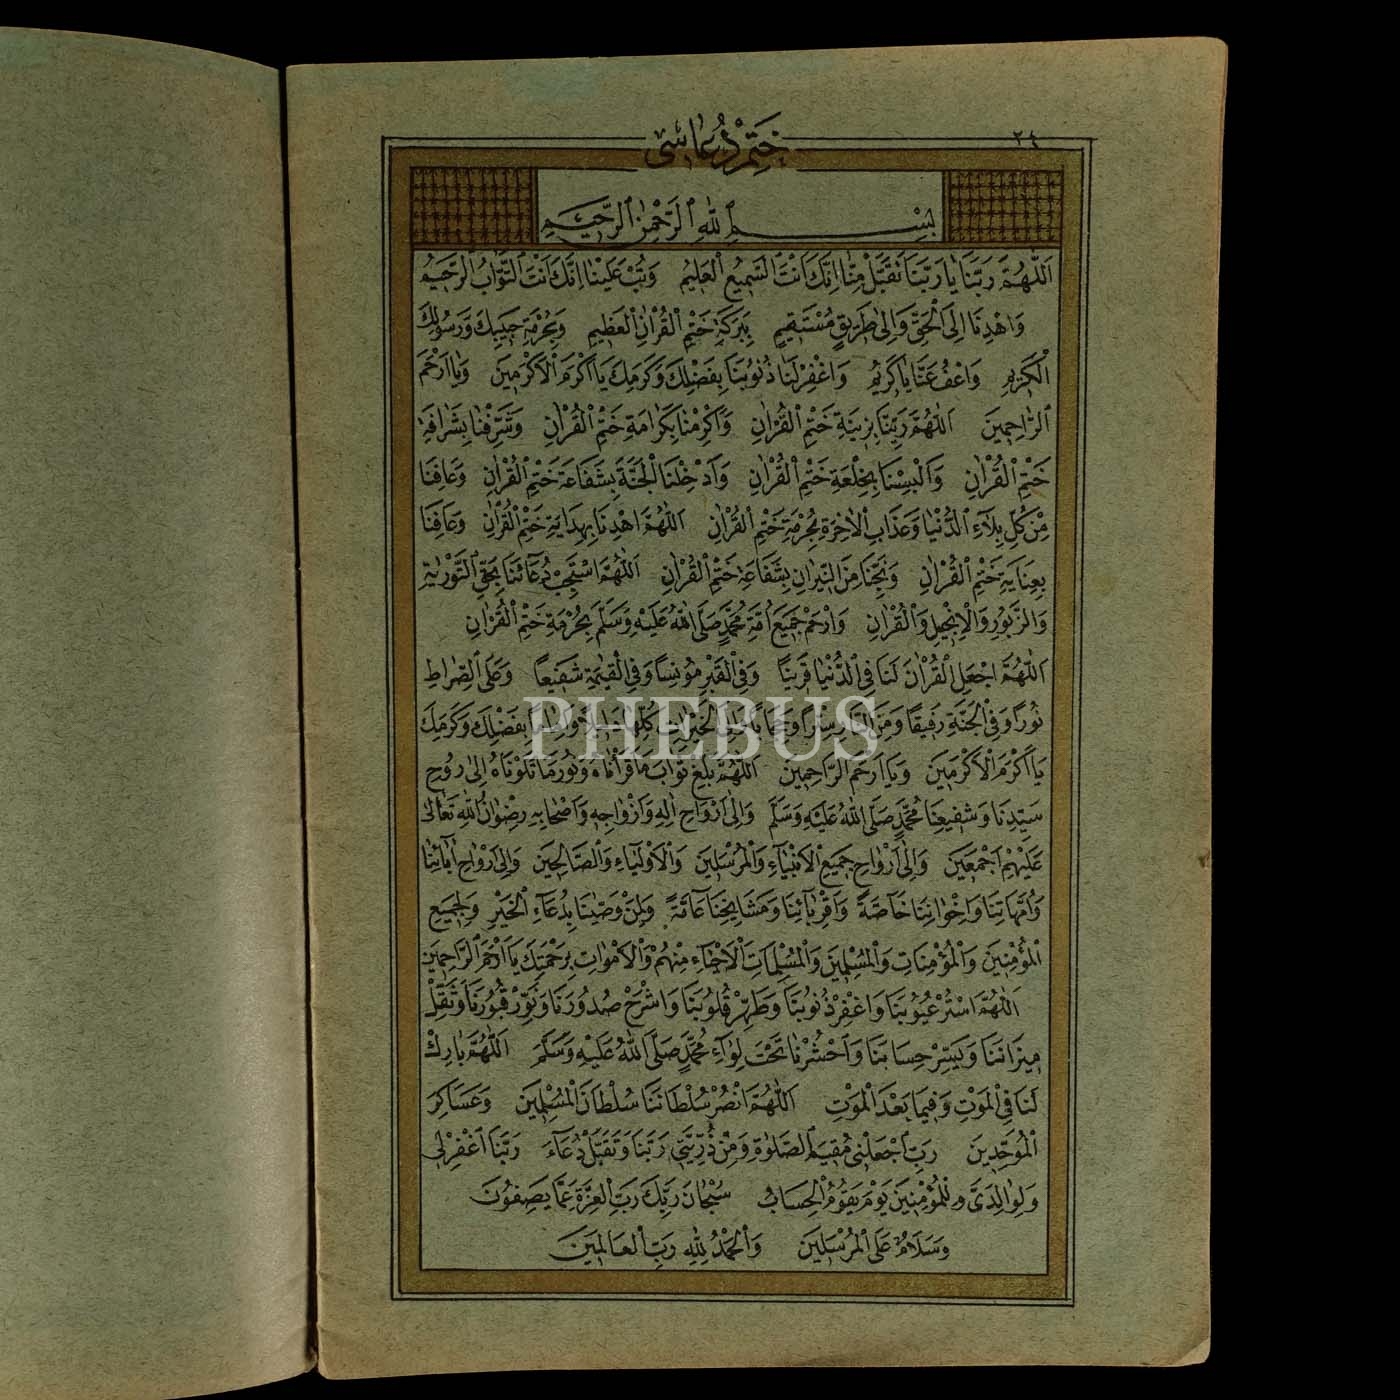 ٢٤
ختم دعاسى
بِسْمِ اللهِ الرَّحْمٰنِ الرَّحِيمِ
اَللّٰهُمَّ رَبَّنَا يَا رَبَّنَا تَقَبَّلْ مِنَّا اِنَّكَ اَنْتَ السَّمِيعُ الْعَلِيمُ وَتُبْ عَلَيْنَا اِنَّكَ اَنْتَ التَّوَّابُ الرَّحِيمُ
وَاهْدِنَا اِلَى الْحَقِّ وَاِلٰى طَرِيقٍ مُسْتَقِيمٍ بِبَرَكَةِ خَتْمِ الْقُرْاٰنِ الْعَظِيمِ وَبِحُرْمَةِ حَبِيبِكَ وَرَسُولِكَ
الْكَرِيمِ وَاعْفُ عَنَّا يَا كَرِيمُ وَاغْفِرْ لَنَا ذُنُوبَنَا بِفَضْلِكَ وَكَرَمِكَ يَا اَكْرَمَ الْاَكْرَمِينَ وَيَا اَرْحَمَ
الرَّاحِمِينَ اَللّٰهُمَّ زَيِّنَّا بِزِينَةِ خَتْمِ الْقُرْاٰنِ وَاَكْرِمْنَا بِكَرَامَةِ خَتْمِ الْقُرْاٰنِ وَشَرِّفْنَا بِشَرَافَةِ
خَتْمِ الْقُرْاٰنِ وَاَلْبِسْنَا بِخِلْعَةِ خَتْمِ الْقُرْاٰنِ وَاَدْخِلْنَا الْجَنَّةَ بِشَفَاعَةِ خَتْمِ الْقُرْاٰنِ وَعَافِنَا
مِنْ كُلِّ بَلَاءِ الدُّنْيَا وَعَذَابِ الْاٰخِرَةِ بِحُرْمَةِ خَتْمِ الْقُرْاٰنِ اَللّٰهُمَّ اهْدِنَا بِهِدَايَةِ خَتْمِ الْقُرْاٰنِ وَعَافِنَا
بِعِنَايَةِ خَتْمِ الْقُرْاٰنِ وَنَجِّنَا مِنَ النِّيرَانِ بِشَفَاعَةِ خَتْمِ الْقُرْاٰنِ اَللّٰهُمَّ اسْتَجِبْ دُعَائَنَا بِحَقِّ التَّوْرٰيةِ
وَالزَّبُورِ وَالْاِنْجِيلِ وَالْقُرْاٰنِ وَارْحَمْ جَمِيعَ اُمَّةِ مُحَمَّدٍ صَلَّى اللهُ عَلَيْهِ وَسَلَّمَ بِحُرْمَةِ خَتْمِ الْقُرْاٰنِ
اَللّٰهُمَّ اجْعَلِ الْقُرْاٰنَ لَنَا فِى الدُّنْيَا قَرِينًا وَفِى الْقَبْرِ مُونِسًا وَفِى الْقِيٰمَةِ شَفِيعًا وَعَلَى الصِّرَاطِ
نُورًا وَفِى الْجَنَّةِ رَفِيقًا وَمِنَ النَّارِ سِتْرًا وَحِجَابًا وَاِلَى الْخَيْرَاتِ كُلِّهَا دَلِيلًا وَاِمَامًا بِفَضْلِكَ وَكَرَمِكَ
يَا اَكْرَمَ الْاَكْرَمِينَ وَيَا اَرْحَمَ الرَّاحِمِينَ اَللّٰهُمَّ بَلِّغْ ثَوَابَ مَا قَرَأْنَاهُ وَنُورَ مَا تَلَوْنَاهُ اِلٰى رُوحِ
سَيِّدِنَا وَشَفِيعِنَا مُحَمَّدٍ صَلَّى اللهُ عَلَيْهِ وَسَلَّمَ وَاِلٰى اَرْوَاحِ اٰلِهِ وَاَزْوَاجِهِ وَاَصْحَابِهِ رِضْوَانُ اللهِ تَعَالٰى
عَلَيْهِمْ اَجْمَعِينَ وَاِلٰى اَرْوَاحِ جَمِيعِ الْاَنْبِيَاءِ وَالْمُرْسَلِينَ وَالْاَوْلِيَاءِ وَالصَّالِحِينَ وَاِلٰى اَرْوَاحِ اٰبَائِنَا
وَاُمَّهَاتِنَا وَاِخْوَانِنَا خَاصَّةً وَاَقْرِبَائِنَا وَمَشَايِخِنَا عَامَّةً وَلِمَنْ وَصَّيْنَا بِدُعَاءِ الْخَيْرِ وَلِجَمِيعِ
الْمُؤْمِنِينَ وَالْمُؤْمِنَاتِ وَالْمُسْلِمِينَ وَالْمُسْلِمَاتِ اَلْاَحْيَاءِ مِنْهُمْ وَالْاَمْوَاتِ بِرَحْمَتِكَ يَا اَرْحَمَ الرَّاحِمِينَ
اَللّٰهُمَّ اسْتُرْ عُيُوبَنَا وَاغْفِرْ ذُنُوبَنَا وَطَهِّرْ قُلُوبَنَا وَاشْرَحْ صُدُورَنَا وَنَوِّرْ قُبُورَنَا وَثَقِّلْ
مِيزَانَنَا وَيَسِّرْ حِسَابَنَا وَاحْشُرْنَا تَحْتَ لِوَاءِ مُحَمَّدٍ صَلَّى اللهُ عَلَيْهِ وَسَلَّمَ اَللّٰهُمَّ بَارِكْ
لَنَا فِى الْمَوْتِ وَفِيمَا بَعْدَ الْمَوْتِ اَللّٰهُمَّ انْصُرْ سُلْطَانَنَا سُلْطَانَ الْمُسْلِمِينَ وَعَسَاكِرَ
الْمُوَحِّدِينَ رَبِّ اجْعَلْنِى مُقِيمَ الصَّلٰوةِ وَمِنْ ذُرِّيَّتِى رَبَّنَا وَتَقَبَّلْ دُعَاءَ رَبَّنَا اغْفِرْلِى
وَلِوَالِدَىَّ وَلِلْمُؤْمِنِينَ يَوْمَ يَقُومُ الْحِسَابُ سُبْحَانَ رَبِّكَ رَبِّ الْعِزَّةِ عَمَّا يَصِفُونَ
وَسَلَامٌ عَلَى الْمُرْسَلِينَ وَالْحَمْدُ لِلّٰهِ رَبِّ الْعَالَمِينَ
PHEBUS